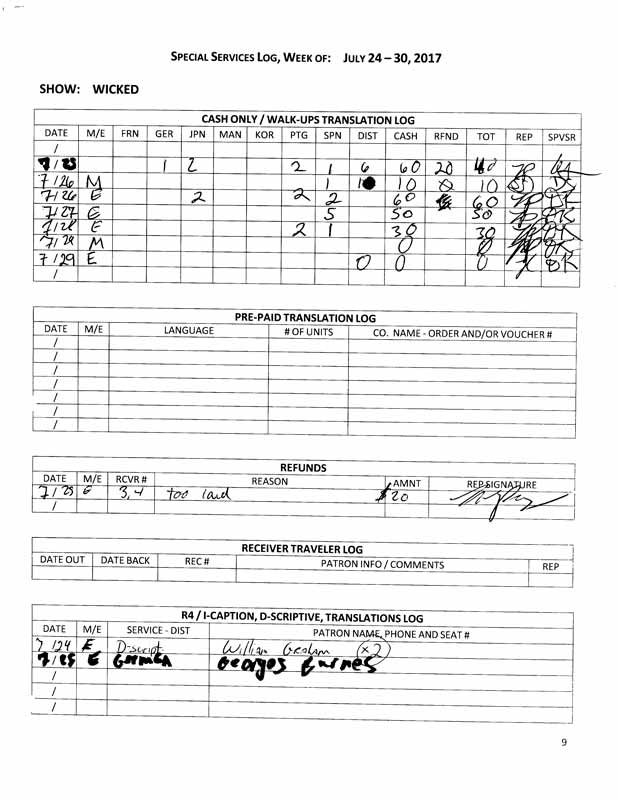 SPECIAL SERVICES LOG, WEEK OF: JULY 24 – 30, 2017
SHOW: WICKED
CASH ONLY / WALK-UPS TRANSLATION LOG
DATE M/E FRN GER JPN MAN KOR PTG SPN DIST CASH RFND TOT REP SPVSR
/
7/25 1 2 2 1 6 60 20 40
7/26 M 1 10 10
7/26 E 2 2 2 60 60
7/27 E 5 50 50
7/28 E 2 1 30 30
7/29 M 0 0
7/29 E 0 0 0
/
PRE-PAID TRANSLATION LOG
DATE M/E LANGUAGE # OF UNITS CO. NAME - ORDER AND/OR VOUCHER #
/
/
/
/
/
/
/
REFUNDS
DATE M/E RCVR # REASON AMNT REP SIGNATURE
7/25 E 3,4 too loud $20
/
RECEIVER TRAVELER LOG
DATE OUT DATE BACK REC # PATRON INFO / COMMENTS REP
R4 / I-CAPTION, D-SCRIPTIVE, TRANSLATIONS LOG
DATE M/E SERVICE - DIST PATRON NAME, PHONE AND SEAT #
7/24 E D-script William Graham (x2)
7/25 E German Georges
/
/
/
9